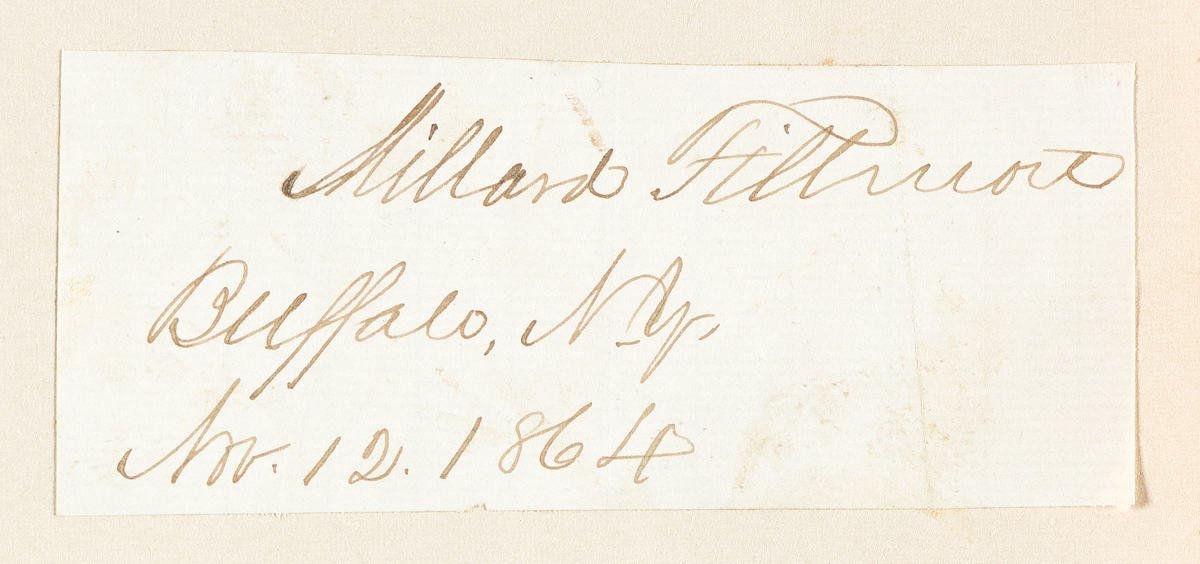 Millard Fillmore
Buffalo, N.Y.
Nov. 12. 1864